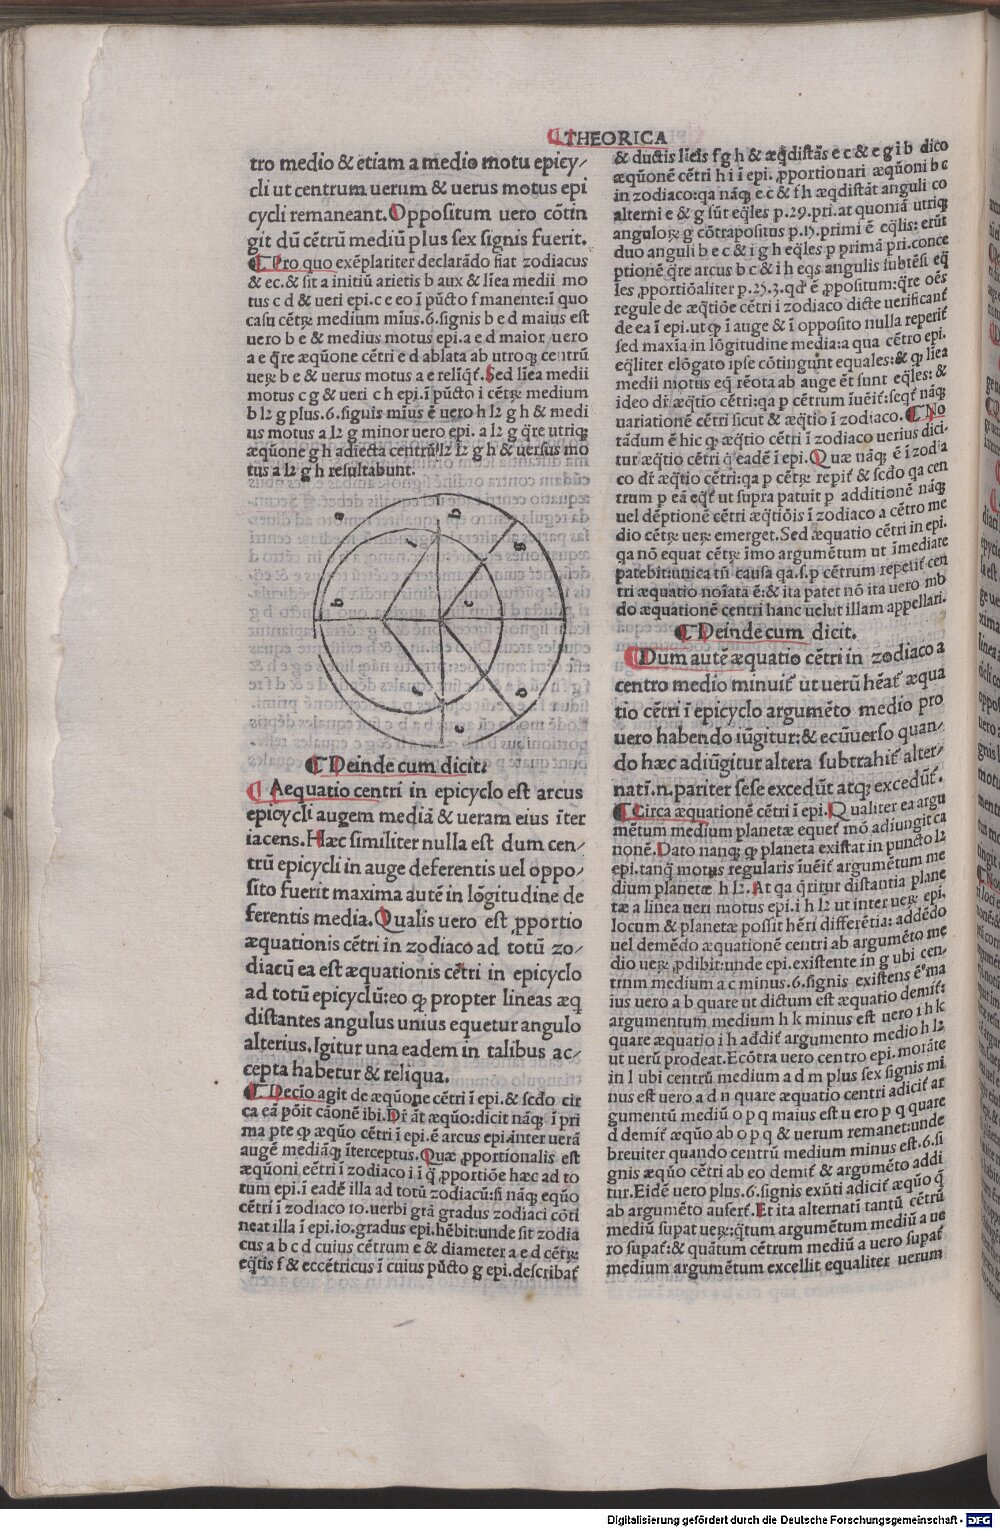 THEORICA
tro medio & etiam a medio motu epicy/
cli ut centrum uerum & uerus motus epi
cycli remaneant. Oppositum uero cōtin
git dū cētrū mediū plus sex signis fuerit.
Pro quo exēplariter declarādo fiat zodiacus
& ec. & sit a initiū arietis b aux & līea medii mo
tus c d & ueri epi. c e eo ī pūcto f manente: ī quo
casu cētrꝝ medium mīus .6. signis b e d maius est
uero b e & medius motus epi. a e d maior uero
a e q̄re æquōne cētri e d ablata ab utroqꝫ centrū
ueꝝ b e & uerus motus a e relīqt̄. Sed līea medii
motus c g & ueri c h epi. ī pūcto i cētrꝝ medium
b lꝫ g plus .6. signis mīus ē uero h lꝫ g h & medi
us motus a lꝫ g minor uero epi. a lꝫ g q̄re utriqꝫ
æquōne g h adiecta centrū lꝫ lꝫ g h & uersus mo
tus a lꝫ g h resultabunt.
a
b
l
g
b
c
e
b
e
Deinde cum dicit.
Aequatio centri in epicyclo est arcus
epicycli augem mediā & ueram eius īter
iacens. Hæc similiter nulla est dum cen/
trū epicycli in auge deferentis uel oppo/
sito fuerit maxima autē in lōgitudine de
ferentis media. Qualis uero est ꝓportio
æquationis cētri in zodiaco ad totū zo/
diacū ea est æquationis cētri in epicyclo
ad totū epicyclū: eo ꝙ propter lineas æq
distantes angulus unius equetur angulo
alterius. Igitur una eadem in talibus ac/
cepta habetur & reliqua.
Decio agit de æquōne cētri ī epi. & scd̄o cir
ca eā pōit cāonē ibi. Dr̄ āt æquo: dicit nāqꝫ ī pri
ma pte ꝙ æquo cētri ī epi. ē arcus epi. inter uerā
augē mediāqꝫ īterceptus. Quæ ꝓportionalis est
æquōni cētri ī zodiaco i ī q̄ ꝓportiōe hæc ad to
tum epi. ī eadē illa ad totū zodiacū: si nāqꝫ equo
cētri ī zodiaco 10. uerbi grā gradus zodiaci cōti
neat illa ī epi. 10. gradus epi. hēbit: unde sit zodia
cus a b c d cuius cētrum e & diameter a e d cētꝝ
eq̄tis f & eccētricus ī cuius pūcto g epi. describat̄
& ductis līeis f g h & æqdistās e c & e g i b dico
æquōnē cētri h i ī epi. ꝓportionari æquōni b c
in zodiaco: qa nāqꝫ e c & f h æqdistāt anguli co
alterni e & g sūt eq̄les p .29. pri. at quoniā utriqꝫ
anguloꝝ g cōtrapositus p .15. primi ē eq̄lis: erūt
duo anguli b e c & i g h eq̄les p primā pri. conce
ptionē q̄re arcus b c & i h eqs angulis subtēsi eq̄
les ꝓportiōaliter p .25. 3. qd̄ ē ꝓpositum: q̄re oēs
regule de æq̄tiōe cētri ī zodiaco dicte uerificant̄
de ea ī epi. ut ꝙ ī auge & ī opposito nulla reperit̄
sed maxīa in lōgitudine media: a qua cētro epi.
eq̄liter elōgato ipse cōtingunt equales: & ꝙ līea
medii motus eq̄ rēota ab auge ēt sunt eq̄les: &
ideo dr̄ æq̄tio cētri: qa p cētrum iuēit̄: seqt̄ nāqꝫ
uariationē cētri sicut & æq̄tio ī zodiaco. No
tādum ē hic ꝙ æq̄tio cētri ī zodiaco uerius dici.
tur æq̄tio cētri q̄ eadē ī epi. Quæ nāqꝫ ē ī zodia
co dr̄ æq̄tio cētri: qa p cētꝝ repit̄ & scd̄o qa cen
trum p eā eqt̄ ut supra patuit p additionē nāqꝫ
uel dēptionē cētri æq̄tiōis ī zodiaco a cētro me
dio cētrꝝ ueꝝ emerget. Sed æquatio cētri in epi.
qa nō equat cētꝝ īmo argumētum ut īmediate
patebit: unica tn̄ causa qa .s. p cētrum repetit̄ cen
tri æquatio noīata ē: & ita patet nō ita uero mb
do æquationē centri hanc uelut illam appellari.
Deinde cum dicit.
Dum autē æquatio cētri in zodiaco a
centro medio minuit̄ ut uerū hēat̄ æqua
tio cētri ī epicyclo argumēto medio pro
uero habendo iūgitur: & ecūuerso quan/
do hæc adiūgitur altera subtrahit̄ alter/
nati .n. pariter sese excedūt atqꝫ excedūt̄.
Circa æquationē cētri ī epi. Qualiter ea argu
mētum medium planetæ equet̄ mō adiungit ca
nonē. Dato nanqꝫ ꝙ planeta existat in puncto lꝫ
epi. tanq̄ motus regularis īuēit̄ argumētum me
dium planetæ h lꝫ. At qa q̄ritur distantia plane
tæ a linea ueri motus epi. i h lꝫ ut inter ueꝝ epi.
locum & planetæ possit hēri differētia: addēdo
uel demēdo æquationē centri ab argumēto me
dio ueꝝ ꝓdibit: unde epi. existente in g ubi cen/
trnm medium a c minus .6. signis existens ē ma
ius uero a b quare ut dictum est æquatio demit̄:
argumentum medium h k minus est uero i h k
quare æquatio i h addit̄ argumento medio h lꝫ
ut uerū prodeat. Ecōtra uero centro epi. morāte
in l ubi centrū medium a d m plus sex signis mi
nus est uero a d n quare æquatio centri adicit̄ ar
gumentū mediū o p q maius est u ero p q quare
d demit̄ æquo ab o p q & uerum remanet: unde
breuiter quando centrū medium minus est .6. si
gnis æquo cētri ab eo demit̄ & argumēto addi
tur. Eidē uero plus .6. signis exn̄ti adicit̄ æquo q̄
ab argumēto aufert̄. Et ita alternati tantū cētrū
mediū supat ueꝝ: q̄tum argumētum mediū a ue
ro supat̄: & quātum cētrum mediū a uero supat̄
medium argumētum excellit equaliter uerum
Digitalisierung gefördert durch die Deutsche Forschungsgemeinschaft - DFG